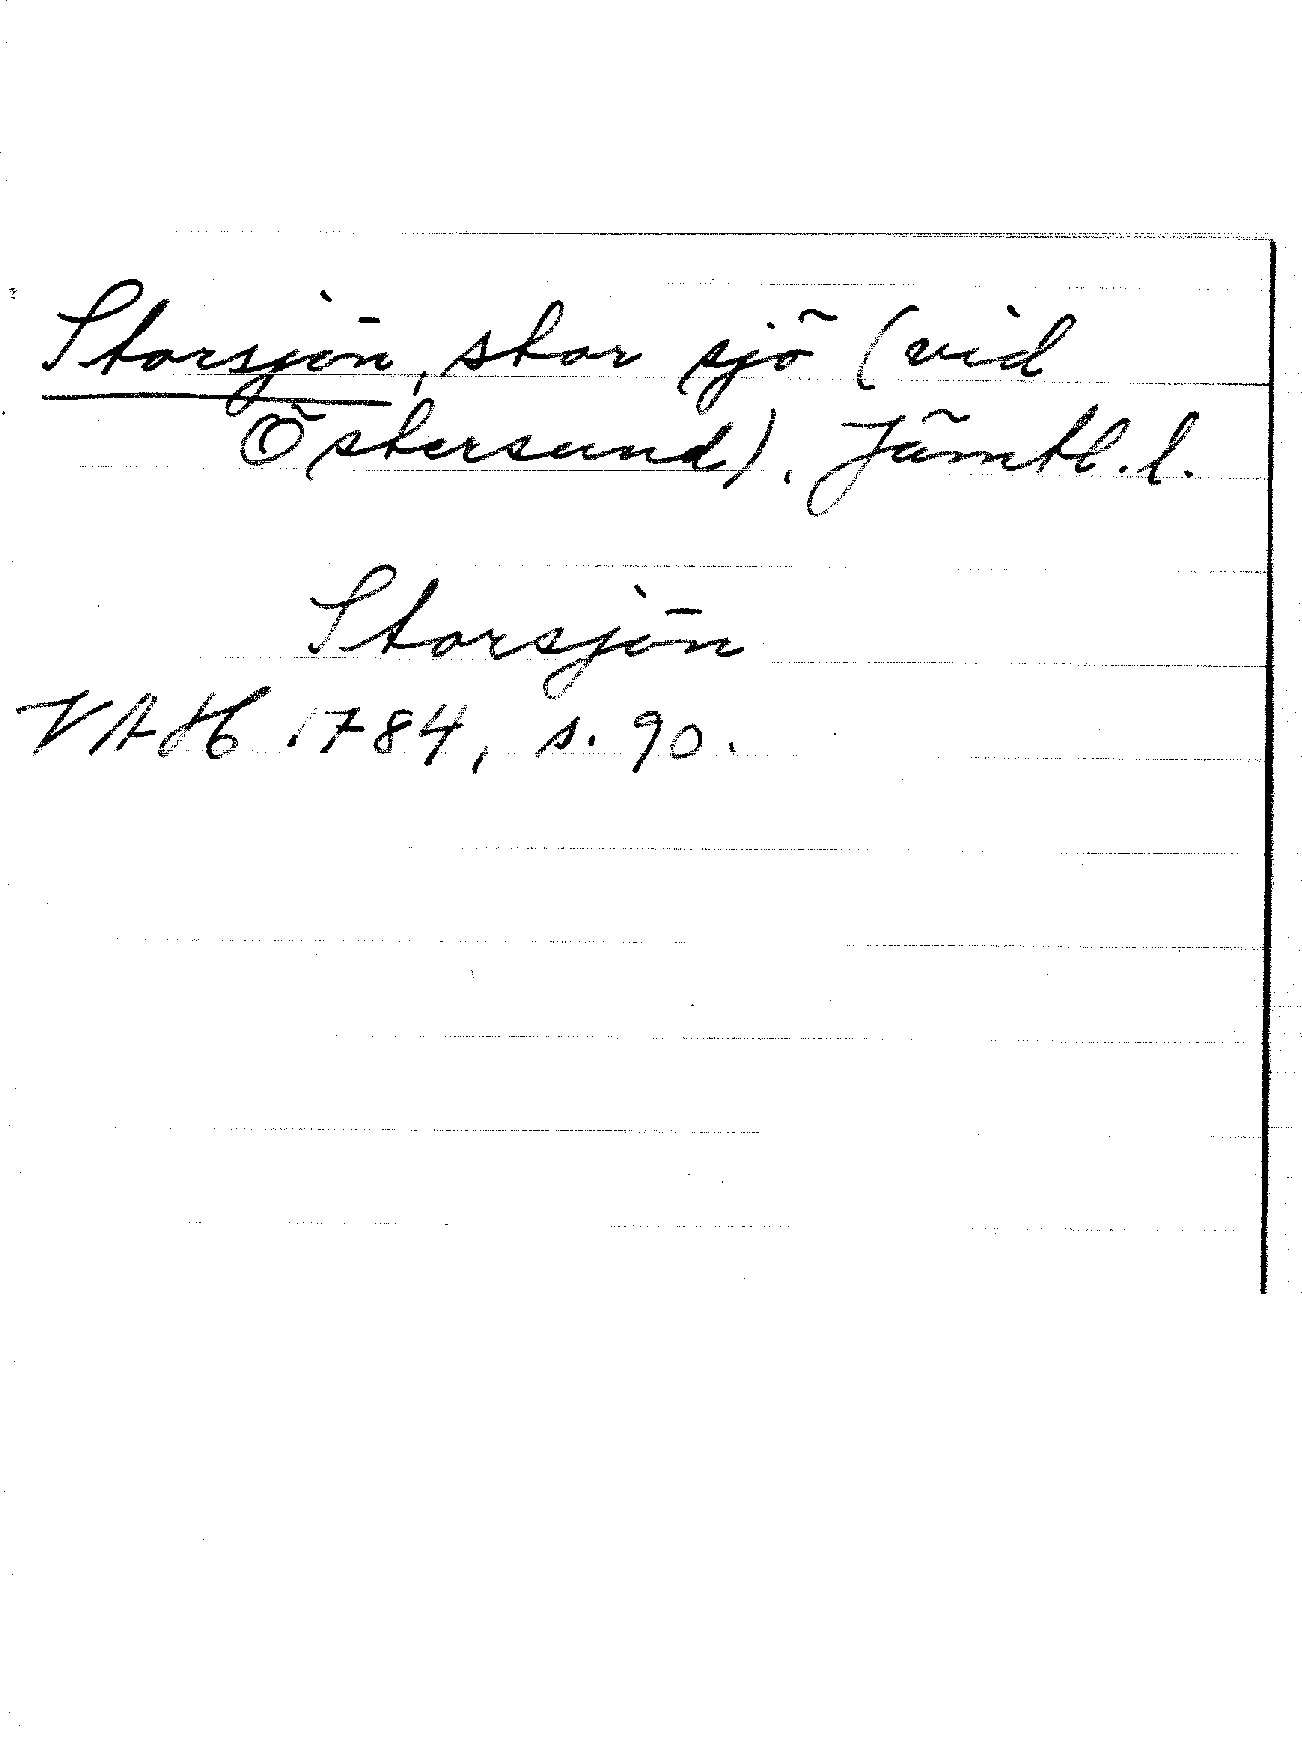 Storsjön, stor sjö (vid
Östersund). Jämtl. l.
Storsjön
VAH 1784, s. 90.